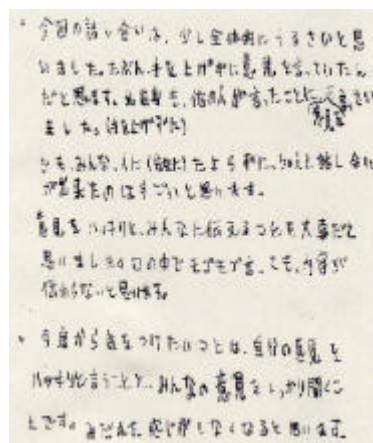 ・今回の話し合いは、少し全体的にうるさいと思
いました。たぶん、手を上げずに意見を言っていたん
だと思います。 他の人が言ったことに
ました。
でも、みんな、人に たよらずに、 話し合い
が出来たのはすごいと思います。
意見をハッキリと、みんなに伝えることも大事だと
思いました。口の中でモゴモゴ言っても、内容が
伝わらないと思います。
・今度から気をつけたいことは、自分の意見を
ハッキリと言うことと、みんなの意見をしっかり聞くこ
とです。 感じがしなくなると思います。